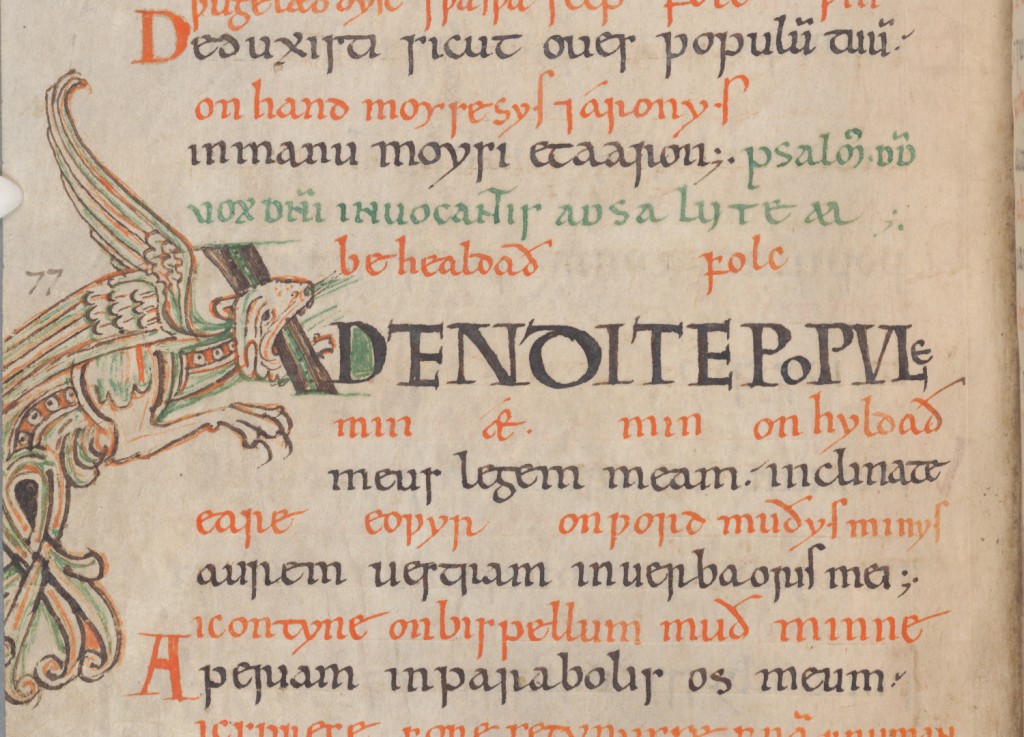 þugelæddyst sƿasƿa scep folc þin
Deduxisti sicut oues populū tuū.
on hand moysesys ⁊ áronys
inmanu moysi et aaron;. psalm̄. dd̄
vox dn̄i inuocantis ad salutem ;.
behealdað folc
77
ADTENDITE POPVLe
min ǽ. min onhyldað
meus legem meam. inclinate
eare eoƿyr onƿord muðys minys
aurem uestram inuerba oris mei;.
ic ontyne onbispellum muð minne
Aperiam inparabolis os meum.